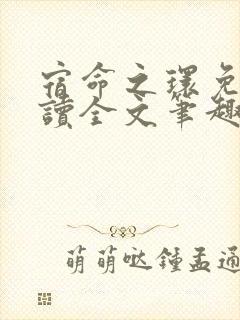 宿命之環免
讀全文筆趣
萌萌哒鍾孟通